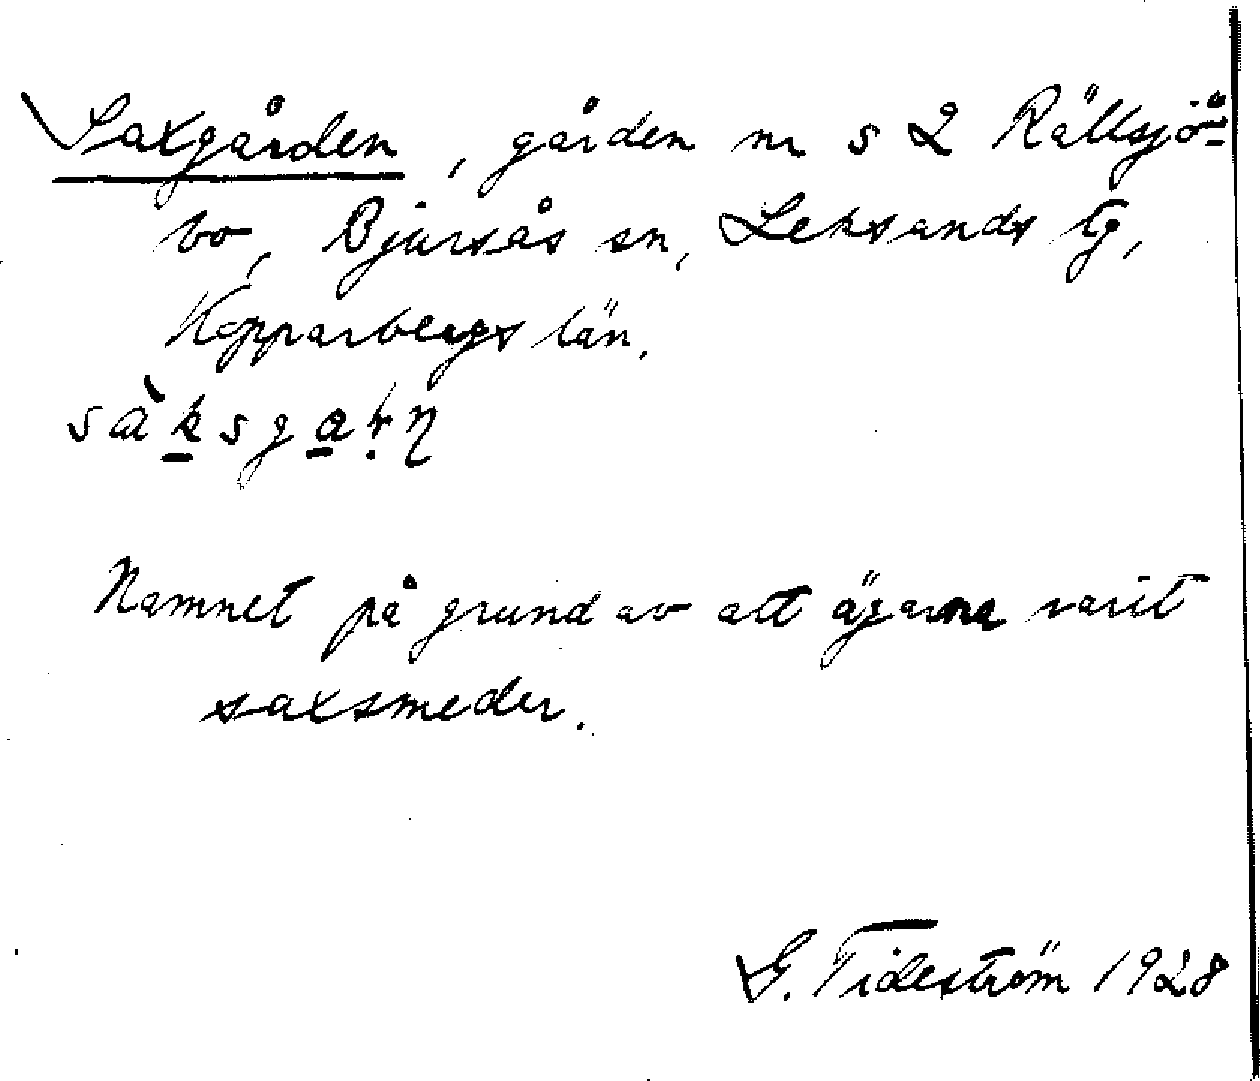 Saxgården, gården nr s 2 Rällsjö-
bo, Bjursås sn, Leksands tg,
Kopparbergs län.
sàksgaṛn
Namnet på grund av att ägarna varit
saxsmeder.
G. Tideström 1928